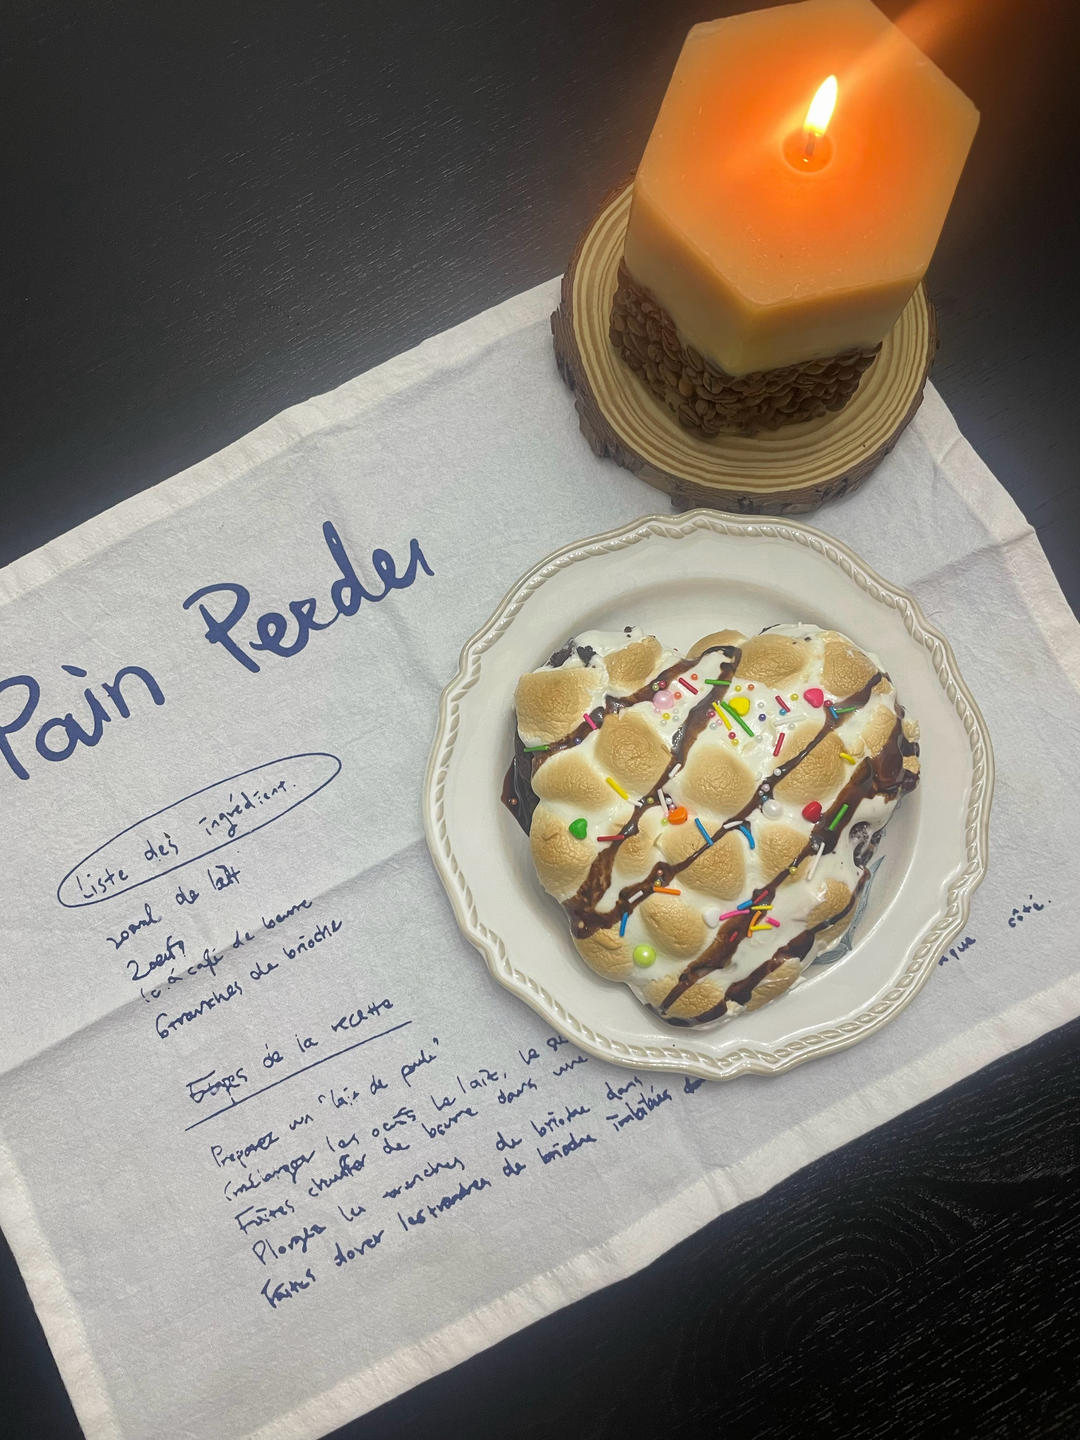 Pain Perdu
Liste des ingrédient.
200ml de lait
2oeufs
1c.à café de beurre
6tranches de brioche
Etapes de la recette
Préparez un "lait de poule"
(mélanger les oeufs le lait, le
Faites chauffer de beurre dans une
Plongez les tranches de brioche dans
Faites dorer les tranches de brioche imbibées
côté.